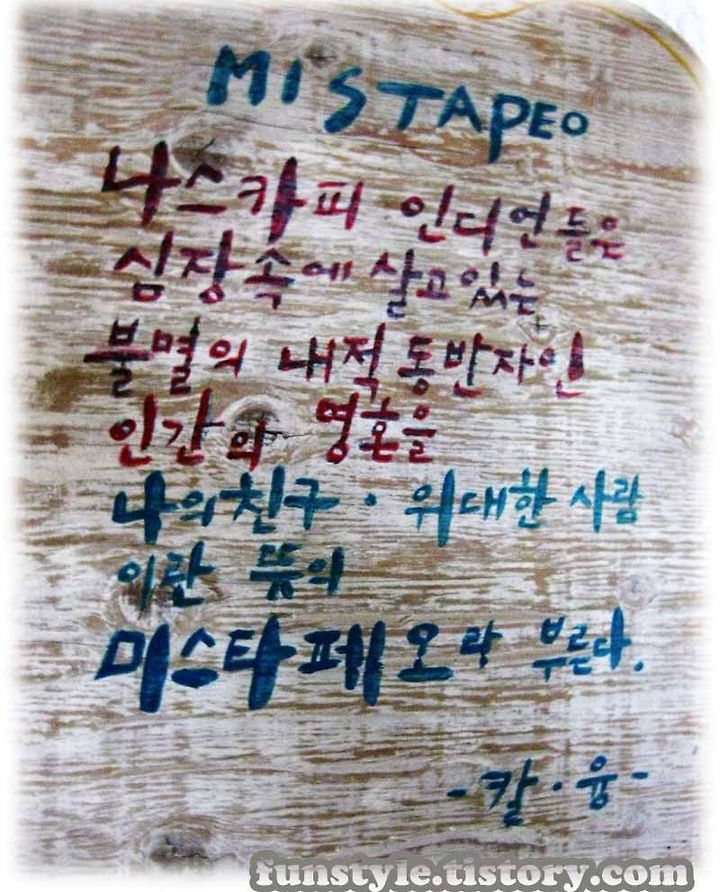 MISTAPEO
나스카피 인디언들은
심장속에 살고있는
불멸의 내적동반자인
인간의 영혼을
나의친구 · 위대한 사람
이란 뜻의
미스타페오라 부른다.
- 칼 · 융 -
funstyle.tistory.com